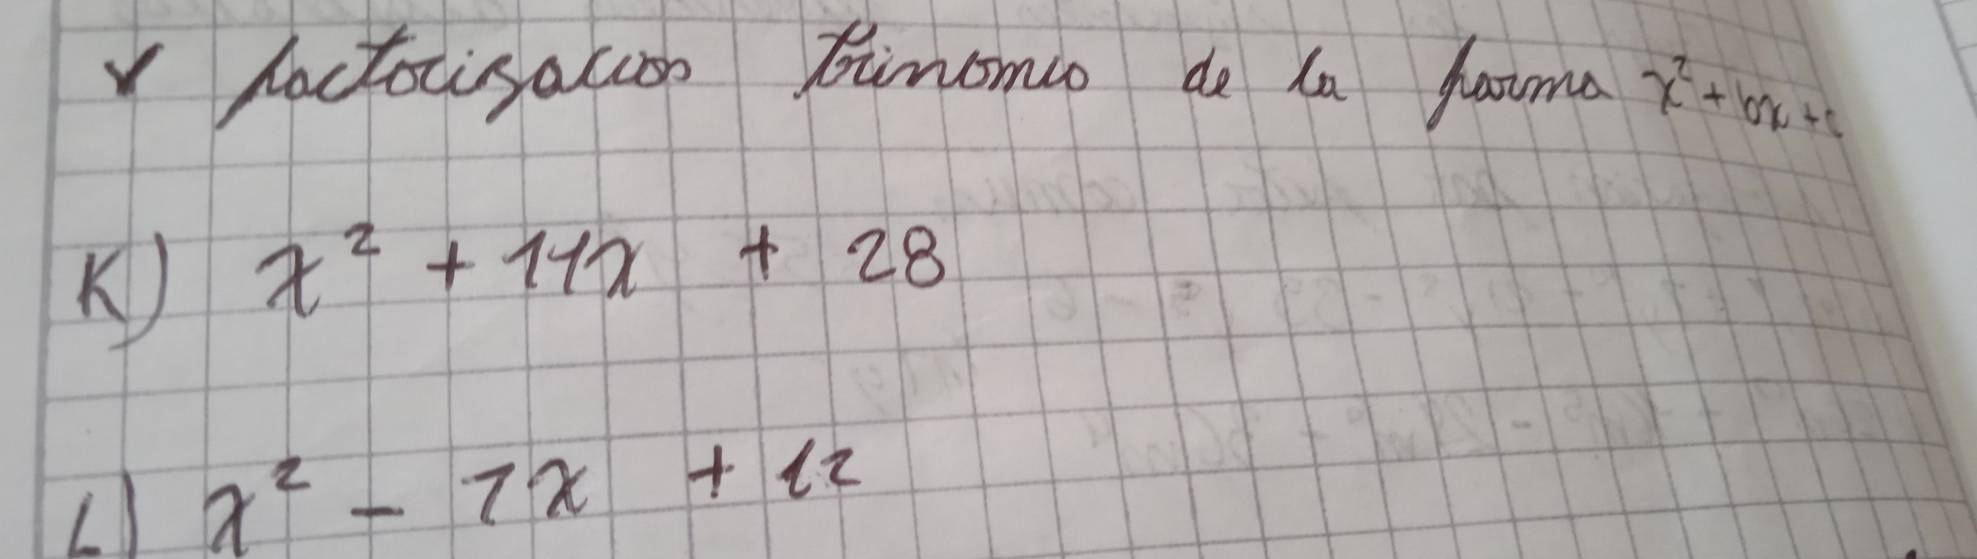 ✓ factorización trinomio de la forma x² + bx + c
K) x² + 11x + 28
L) x² - 7x + 12